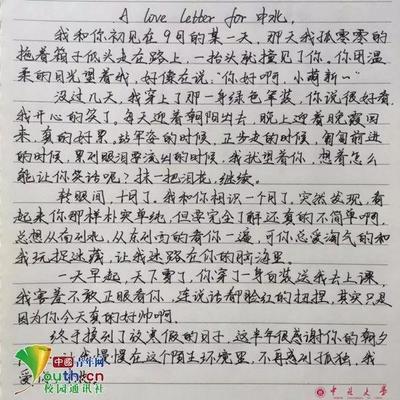 A love letter for 中北.
我和你初见在9月的某一天，那天我孤零零的
拖着箱子低头走在路上，一抬头就撞见了你。你用温
柔的目光望着我，好像在说，“你好啊，小萌新～”
没过几天，我穿上了那一身绿色军装，你说很好看，
我开心的笑了。每天迎着朝阳出去，晚上迎着晚霞回
来，真的好累，站军姿的时候，正步走的时候，匍匐前进
的时候，累到眼泪要流出的时候，我就想着你，想着怎么
能让你笑话呢？抹一把泪花，继续。
转眼间，十月了，我和你相识一个月了。突然发现，看
起来你那样朴实单纯，但要完全了解还真的不简单啊，
总想从南到北，从东到西的看你一遍，可你总爱淘气的和
我玩捉迷藏，让我迷路在你的脑海里。
一天早起，天下雪了，你穿了一身白装送我去上课，
我害羞不敢正眼看你，连说话都脸红的扭捏，其实只是
因为你今天真的好帅啊。
终于挨到了放寒假的日子，这半年很感谢你的朝夕
慢慢在这个陌生环境里，不再感到孤独，我
爱
中国青年网
youth.cn
校园通讯社
中北大学